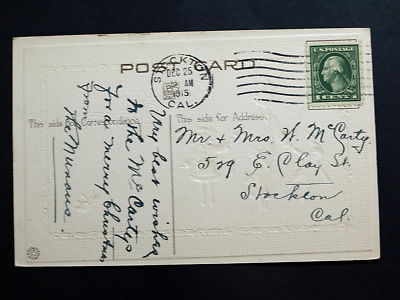 POST CARD
STOCKTON
DEC 25
AM
1915
CAL.
U.S. POSTAGE
1 CENT 1
This side for Correspondence.
This side for Address.
Very best wishes
to the McCartys
for a merry Christmas
from
The Munaus.
Mr. & Mrs. W. McCarty
529 E. Clay St.
Stockton
Cal.